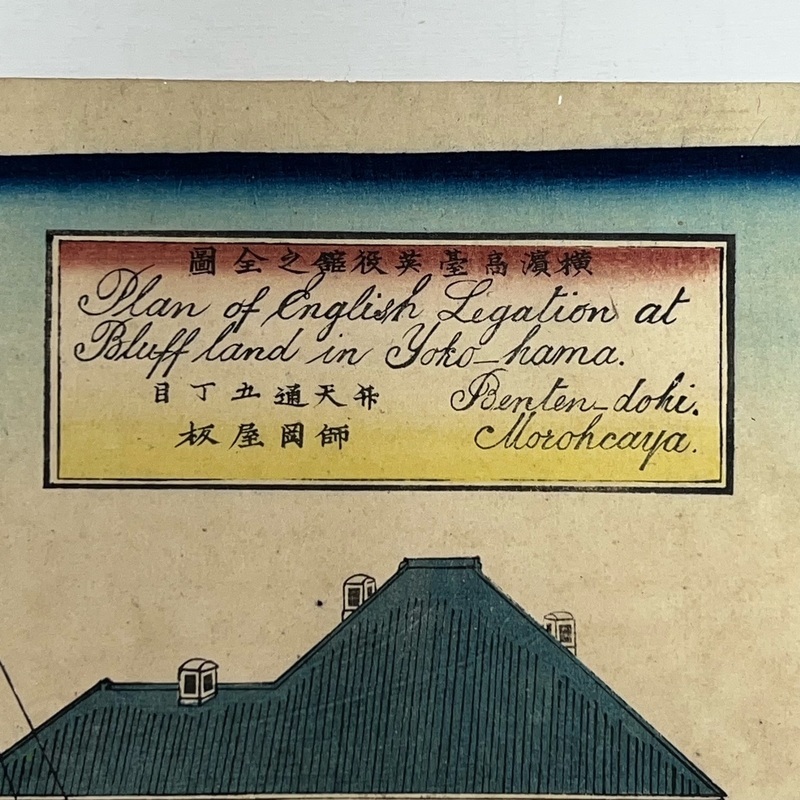 横濱高臺英役舘之全圖
Plan of English Legation at
Bluff land in Yoko-hama.
弁天通五丁目 Benten-dohi.
師岡屋板 Morohcaya.